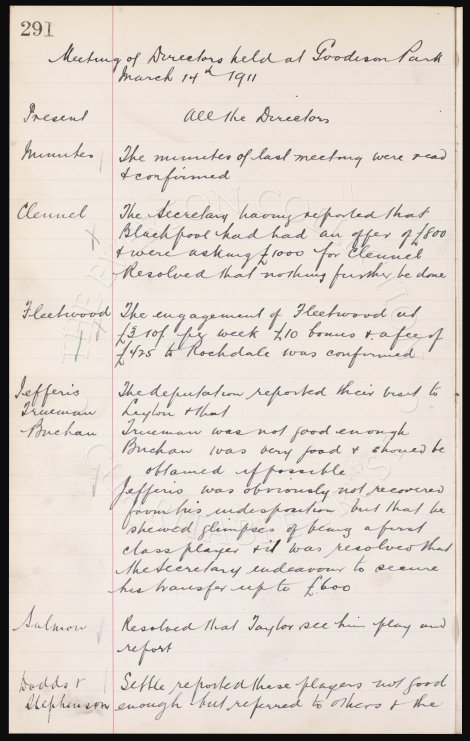 291
Meeting of Directors held at Goodison Park
March 14th 1911
Present All the Directors
Minutes The minutes of last meeting were read
& confirmed
Clennel The Secretary having reported that
Blackpool had had an offer of £800
& were asking £1000 for Clennel
Resolved that nothing further be done
Fleetwood The engagement of Fleetwood at
£3 10/- per week £10 bonus & a fee of
£425 to Rochdale was confirmed
Jefferis The deputation reported their visit to
Trueman Leyton & that
Buchan Trueman was not good enough
Buchan was very good & should be
obtained if possible
Jefferis was obviously not recovered
from his indisposition but that he
shewed glimpses of being a first
class player & it was resolved that
the Secretary endeavour to secure
his transfer up to £600
Salmon Resolved that Taylor see him play and
report
Dodds & Settle reported these players not good
Stephinson enough but referred to others & the